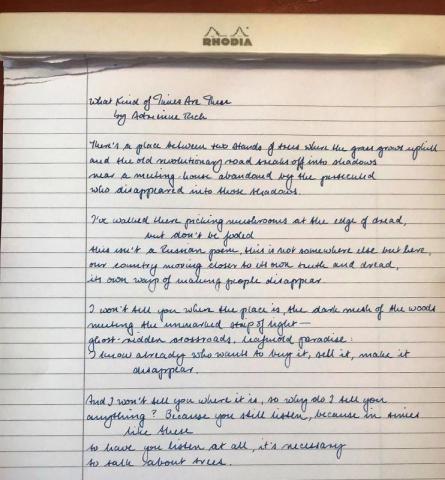 RHODIA
What Kind of Times Are These
by Adrienne Rich
There's a place between two stands of trees where the grass grows uphill
and the old revolutionary road breaks off into shadows
near a meeting-house abandoned by the persecuted
who disappeared into those shadows.
I've walked there picking mushrooms at the edge of dread,
but don't be fooled
this isn't a Russian poem, this is not somewhere else but here,
our country moving closer to its own truth and dread,
its own ways of making people disappear.
I won't tell you where the place is, the dark mesh of the woods
meeting the unmarked strip of light—
ghost-ridden crossroads, leafmold paradise:
I know already who wants to buy it, sell it, make it
disappear.
And I won't tell you where it is, so why do I tell you
anything? Because you still listen, because in times
like these
to have you listen at all, it's necessary
to talk about trees.